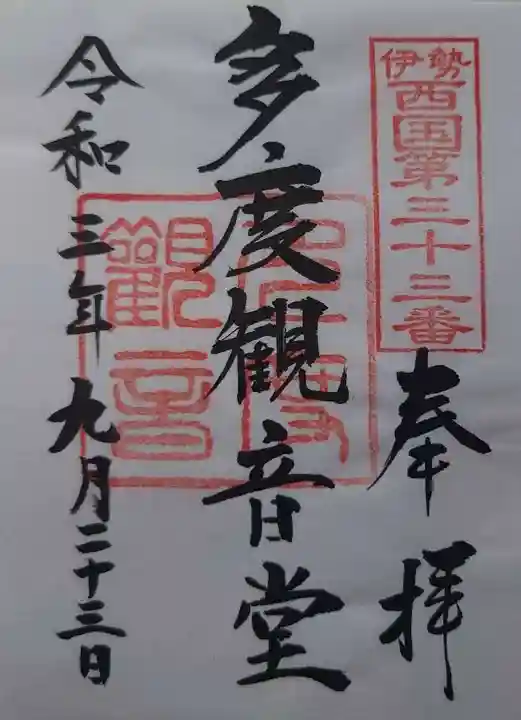 伊勢
西国第三十三番
奉拝
多度観音堂
観音
令和三年九月二十三日